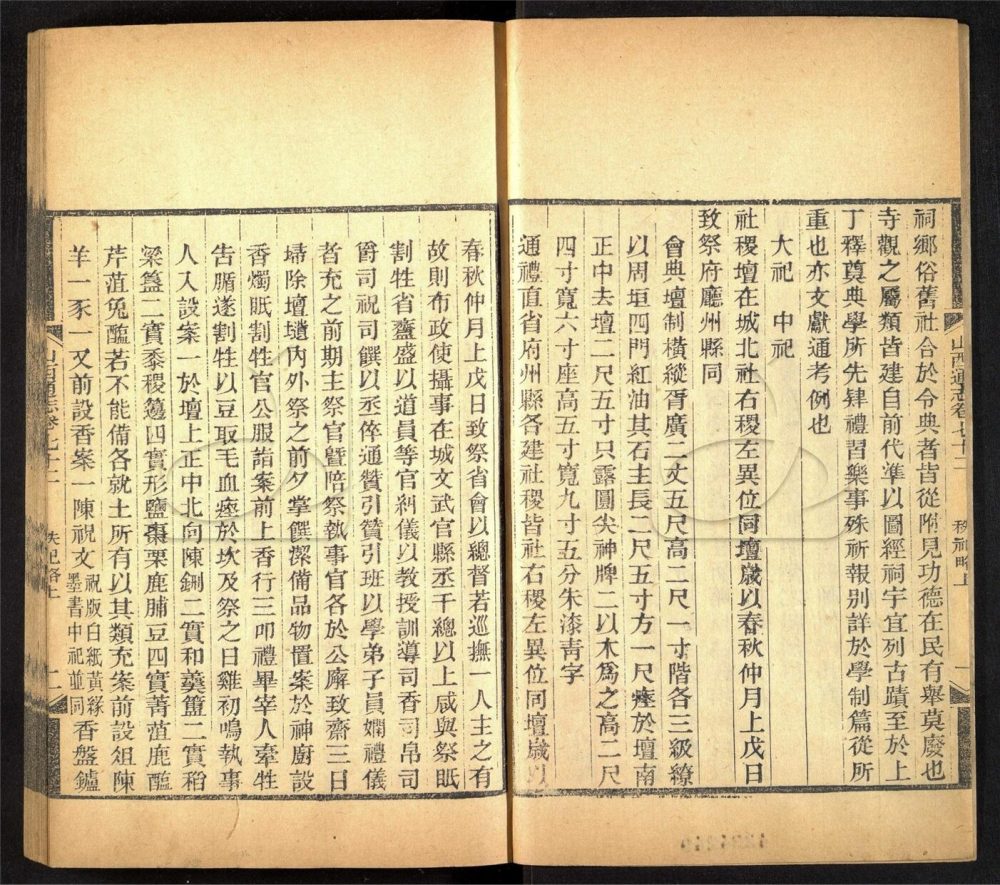 祠鄉俗舊社合於令典者皆從附見功德在民有舉莫廢也
寺觀之屬類皆建自前代準以圖經祠宇宜列古蹟至於上
丁釋奠典學所先肄禮習樂事殊祈報別詳於學制篇從所
重也亦文獻通考例也
大祀 中祀
社稷壇在城北社右稷左異位同壇歲以春秋仲月上戊日
致祭府廳州縣同
會典壇制橫縱胥廣二丈五尺高二尺一寸階各三級繚
以周垣四門紅油其石主長二尺五寸方一尺瘞於壇南
正中去壇二尺五寸只露圓尖神牌二以木爲之高二尺
四寸寬六寸座高五寸寬九寸五分朱漆靑字
通禮直省府州縣各建社稷皆社右稷左異位同壇歲以
山西通志卷七十二 秩祀略上 一
春秋仲月上戊日致祭省會以總督若巡撫一人主之有
故則布政使攝事在城文武官縣丞千總以上咸與祭眂
割牲省齍盛以道員等官糾儀以教授訓導司香司帛司
爵司祝司饌以丞倅通贊引贊引班以學弟子員嫻禮儀
者充之前期主祭官曁陪祭執事官各於公廨致齋三日
埽除壇壝內外祭之前夕掌饌潔備品物置案於神廚設
香燭眂割牲官公服詣案前上香行三叩禮畢宰人牽牲
吿腯遂割牲以豆取毛血瘞於坎及祭之日雞初鳴執事
人入設案一於壇上正中北向陳鉶二實和羹簠二實稻
粱簋二實黍稷籩四實形鹽棗栗鹿脯豆四實菁菹鹿醢
芹菹兔醢若不能備各就土所有以其類充案前設俎陳
羊一豕一又前設香案一陳祝文祝版白紙黃緣墨書中祀並同香盤鑪
山西通志卷七十二 秩祀略上 二